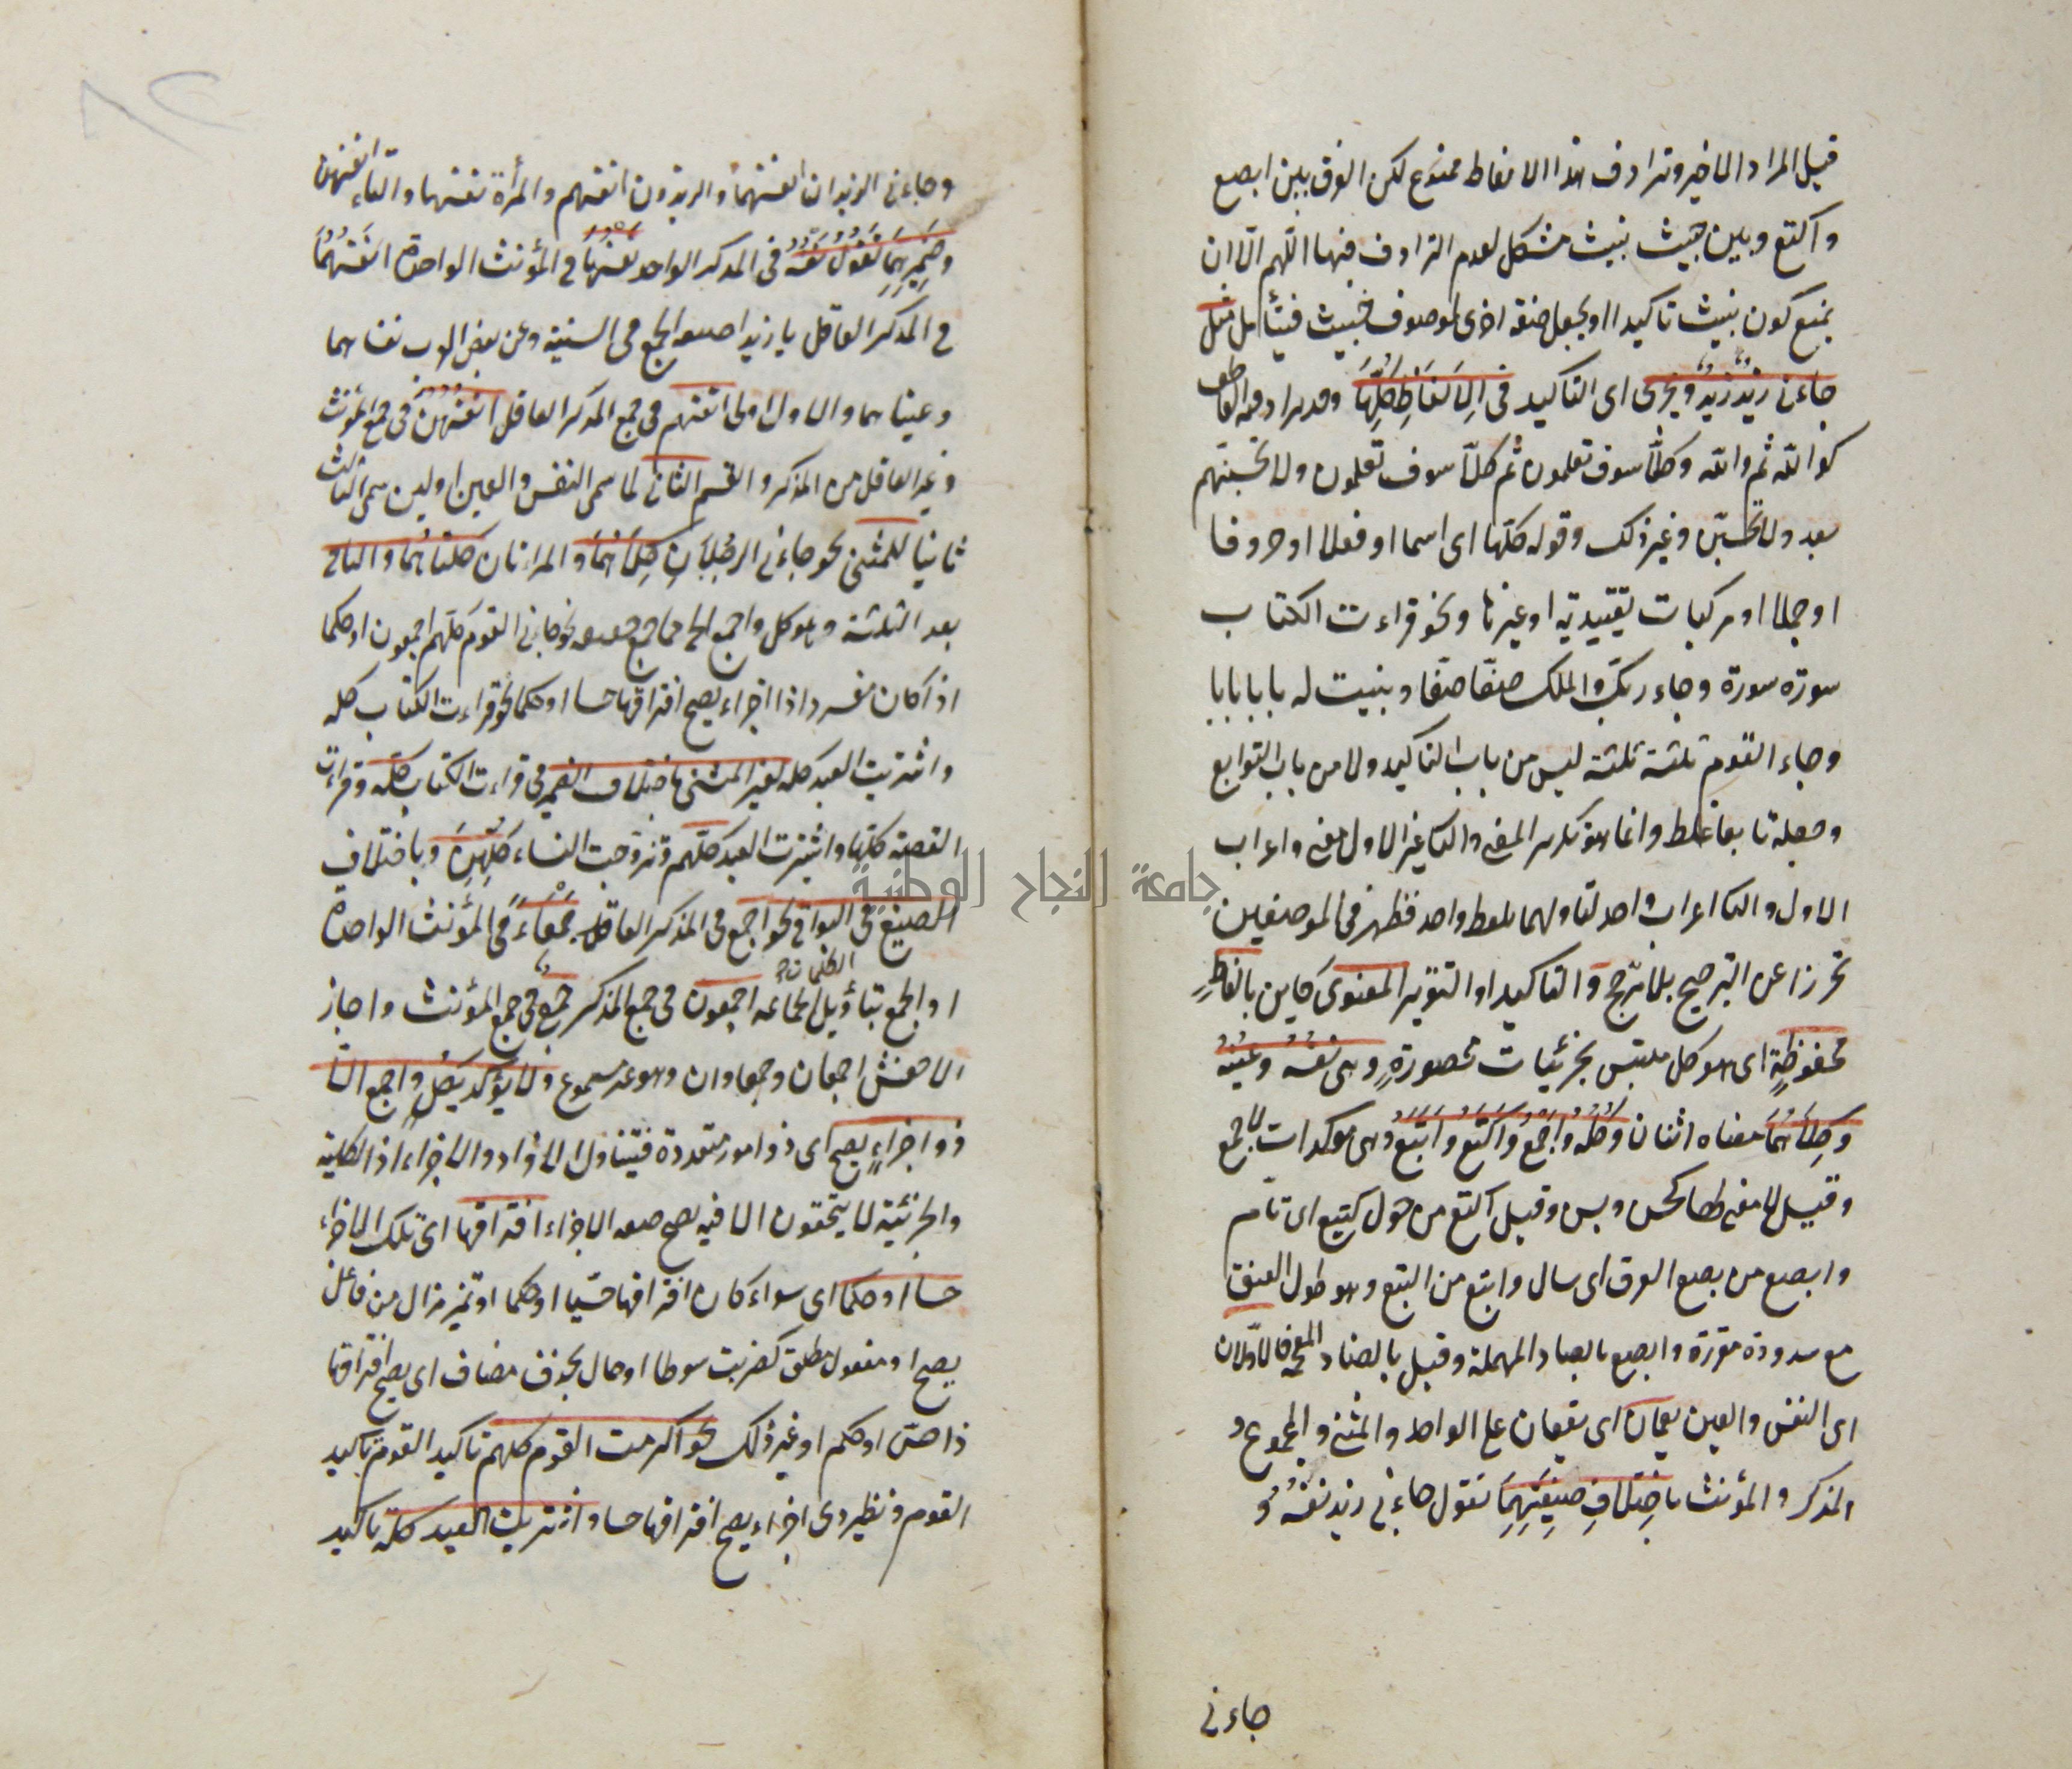 قيل المراد الاخير وترادف هذا الالفاظ ممنوع لكن الفرق بين ابصع
واكتع وبين خبيث نبيث مشكل لعدم الترادف فيها اللهم الا ان
يمنع كون نبيث تاكيدا او يجعل صفة اخرى لموصوف خبيث فيتأمل مثل
جاءني زيد زيد ويجرى اى التاكيد فى الالفاظ كلها وقد يراد فيه العاطف
كوالله ثم والله وكلا سوف تعلمون ثم كلا سوف تعلمون ولا تحسبنهم
بعد ولا تحسبن وغير ذلك وقوله كلها اى اسما او فعلا او حروفا
او جملا او مركبات تقييدية او غيرها ونحو قراءت الكتاب
سورة سورة وجاء ربك والملك صفا صفا وبنيت له بابا بابا
وجاء القوم ثلثة ثلثة ليس من باب التاكيد ولا من باب التوابع
وجعله تابعا غلط وانما هو تكرير المعنى والثا غير الاول معنى واعراب
الاول والثا اعراب واحد لتاولهما بلفظ واحد فظهر فى الموضعين
تحرزا عن الترجيح بلا مرجح والتاكيد او التقرير المعنوى كاين بالفاظ
محفوظة اى هو كل ملتبس بجزئيات محصورة وهى نفسه وعينه
وكلاهما معناه اثنان وكله واجمع واكتع وابتع وهى موكدات لاجمع
وقيل لا معنى لها كحسن وبسن وقيل اكتع من حول كتيع اى تام
وابصع من بصع العرق اى سال وابتع من البتع وهو طول العنق
مع شدودة مقررة وابصع بالصاد المهملة وقيل بالضاد المعجمة فالاولان
اى النفس والعين يعمان اى يقعان على الواحد والمثنى والمجموع و
المذكر والمؤنث باختلاف صيغتهما نقول جاءنى زيد نفسه و
جاءنى
وجاءنى الزيدان انفسهما والزيدون انفسهم والمرأة نفسها والنساء انفسهن
وضميرهما تقول نفسه فى المذكر الواحد نفسها فى المؤنث الواحدة انفسهما
فى المذكر العاقل يا زيد اصيغه الجمع فى التثنية وعن بعض العرب نفساهما
وعيناهما والاول اولى انفسهم فى جمع المذكر العاقل انفسهن فى جمع المؤنث
وغير العاقل من المذكر والقسم الثانى لما سمى النفس والعين اولين سمى الثالث
ثانيا للمثنى نحو جاءنى الرجلان كلاهما والمراتان كلتاهما والباقى
بعد الثلثة وهو كل واجمع الى جمع نحو جاءنى القوم كلهم اجمعون او حكما
اذا كان مفردا ذا اجزاء يصح افتراقها حسا او حكما نحو قراءت الكتاب كله
واشتريت العبد كله لغير المثنى باختلاف الضمير فى قراءت الكتاب كله وقراءت
القصة كلها واشتريت العبد كلهم وتزوجت النساء كلهن وباختلاف
الصيغ فى البواقى نحو اجمع فى المذكر العاقل جمعاء فى المؤنث الواحدة
او الجمع بتأويل الجماعه اجمعون فى جمع المذكر جمع فى جمع المؤنث واجاز
الاخفش اجمعان وجمعاوان وهو غير مسموع ولا يؤكد بكل واجمع الا
ذو اجزاء يصح اى ذو امور متعددة فيتناول الافراد والاجزاء اذ الكلية
والجزئية لا يتحققون الا فيه يصح الاجزاء افتراقها اى تلك الاجزاء
حسا او حكما اى سواء كان افتراقها حسيا او حكما او تميز مزال من فاعل
يصح او مفعول مطلق كضربت سوطا او حال بحذف مضاف اى يصح افتراقها
ذا حس او حكم او غير ذلك نحو اكرمت القوم كلهم تاكيد القوم تاكيد
القوم ونظير ذى اجزاء يصح افتراقها حسا واشتريت العبد كله تاكيد
جامعة النجاح الوطنية